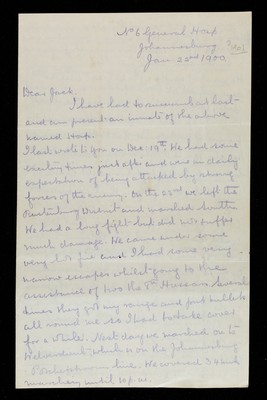 No 6 General Hosp
Johannesburg
Jan 22nd 1901
Dear Jack
I have had to succumb at last
and am present an inmate of the above
named Hosp.
I last wrote to you on Dec 19th We had some
exciting times just after and were in daily
expectation of being attacked by strong
forces of the enemy. On the 23rd we left the
Rustenburg District and marched
We had a long fight but did not suffer
much damage. We came under some
very fire and I had some very
narrow escapes whilst going to the
assistance of two the 8th Hussars. Several
times they got my range and put bullets
all round me so I had to take cover
for a while. Next day we marched on to
which is on the Johannesburg
line. We
marching until